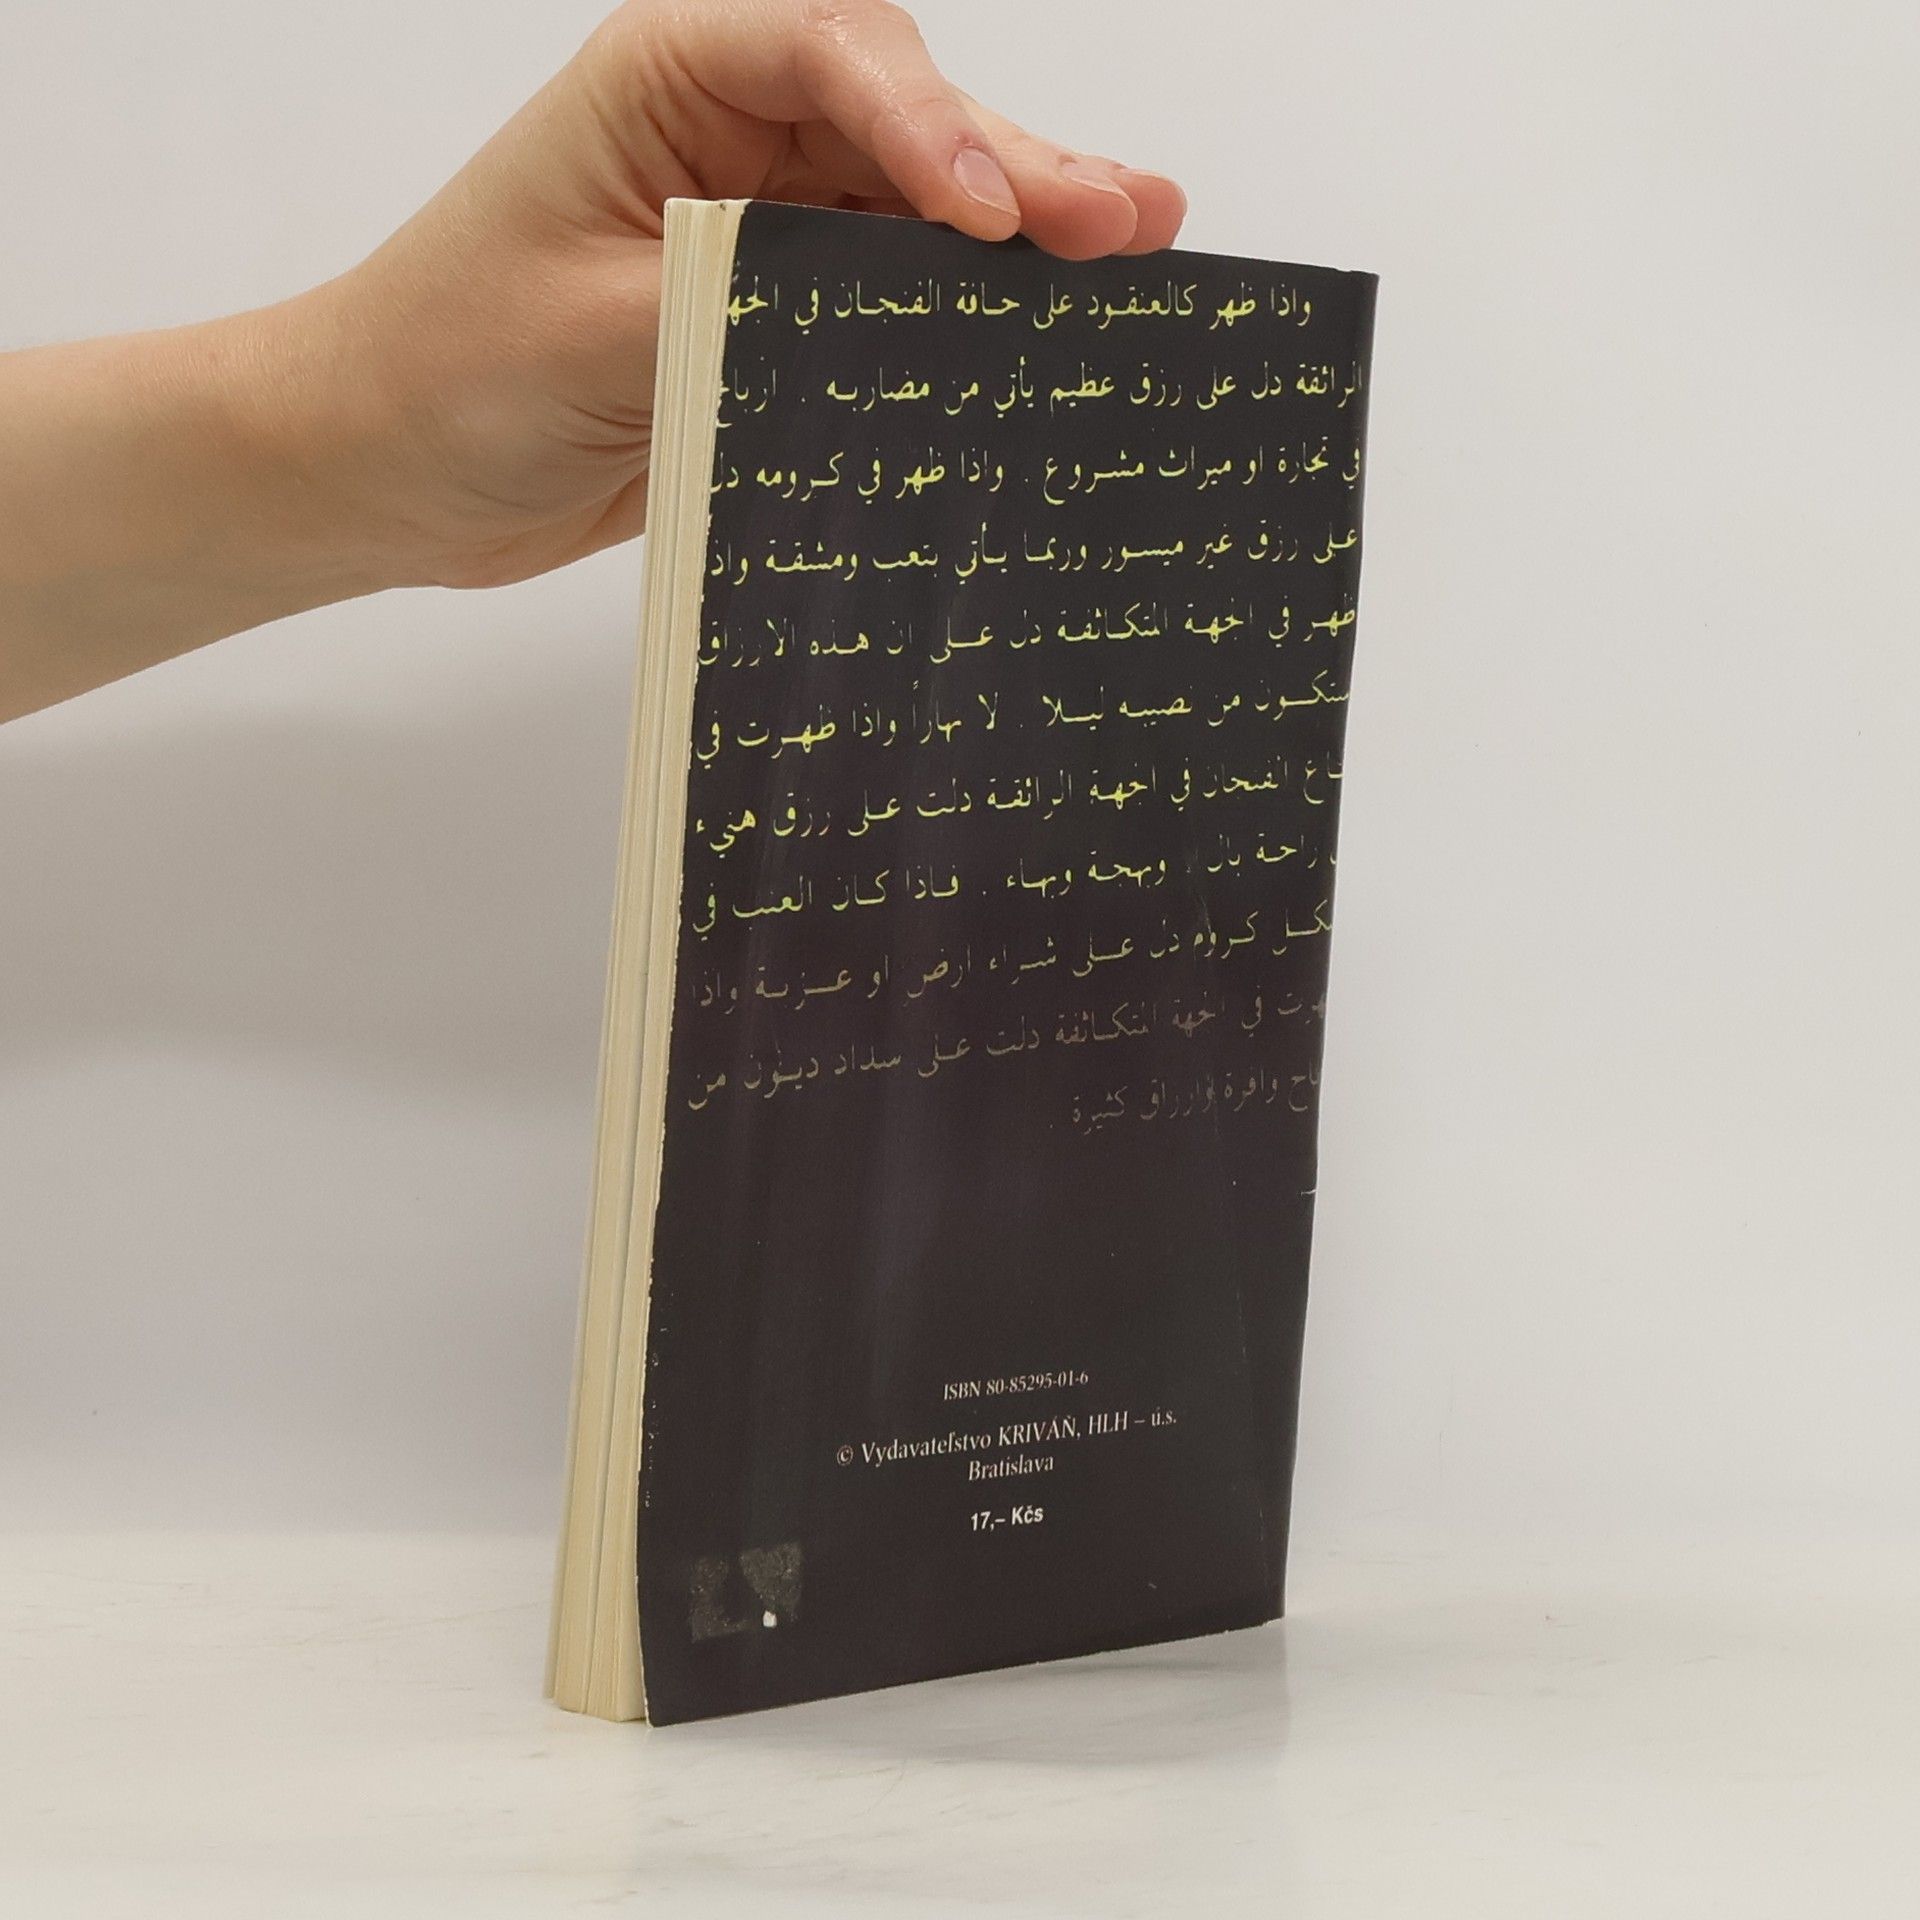 واذا ظهر كالعنقود على حافة الفنجان في الجهة
الرائقة دل على رزق عظيم يأتي من مضاربه . ارباح
في تجارة او ميراث مشروع . واذا ظهر في كرومه دل
على رزق غير ميسور وربما يأتي بتعب ومشقة واذ
ظهر في الجهة المتكاثفة دل على ان هذه الارزاق
ستكون من نصيبه ليلا . لا نهاراً واذا ظهرت في
الفنجان في الجهة الرائقة دلت على رزق هنيء
راحة بال . وبهجة وبهاء . فاذا كان العنب في
كروم دل على شراء ارض او عزبة واذا
في الجهة المتكاثفة دلت على سداد ديون من
وافرة وارزاق كثيرة .
ISBN 80-85295-01-6
© Vydavateľstvo KRIVÁŇ, HLH – ú.s.
Bratislava
17,– Kčs